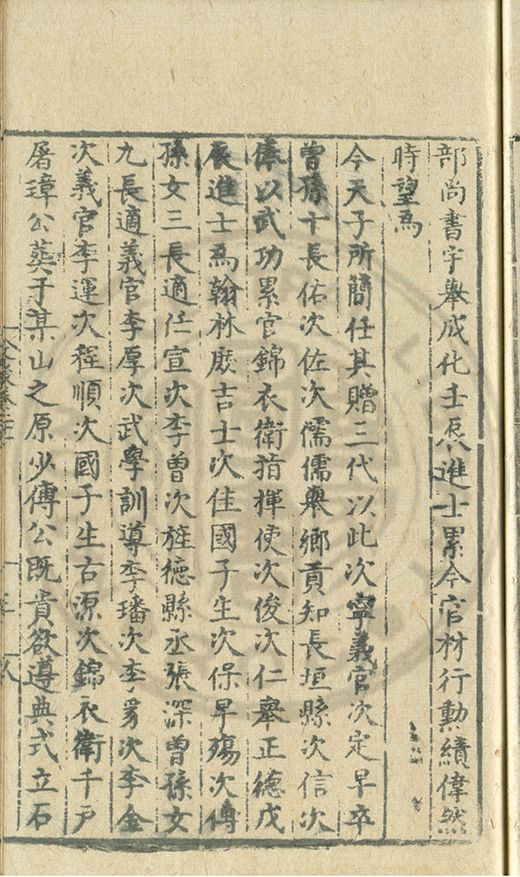 部尚書宇舉成化壬辰進士累今官材行勳績偉然
時望焉
今天子所簡任其贈三代以此次寧義官次定早卒
曾孫十長佑次佐次儒儒舉鄉貢知長垣縣次信次
俸以武功累官錦衣衛指揮使次俊次仁舉正德戊
辰進士爲翰林庶吉士次佳國子生次保早殤次傅
孫女三長適任宣次李曾次旌德縣丞張深曾孫女
九長適義官李厚次武學訓導李璠次李次李金
次義官李運次程順次國子生古源次錦衣衛千戶
屠璋公葬于某山之原少傅公既貴欲遵典式立石